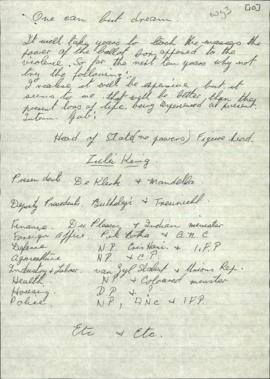 [10]
W53
"One can but dream"
It will take years to teach the masses the
power of the ballot box, opposed to the
violence. So for the next ten years why not
try the following:-
I realise it will be expensive but it
seems to me that will be better than the
present loss of life being experienced at present.
Interim Gov:
Head of State (no powers) Figure head.
Lula Kang
Presidents De Klerk + Mandella
Deputy Presidents Buthelezi + Treurnicht
Finance. Du Plessis + Indian minister
Foreign Office Pik Botha + A.N.C
Defence N.P. + I.F.P
Agriculture N.P + C.P
Industry + Labour van Zyl Slabbert + Unions Rep.
Health N.P + Coloured minister
Housing D.P +
Police N.P, ANC + I.F.P.
Etc + Etc.